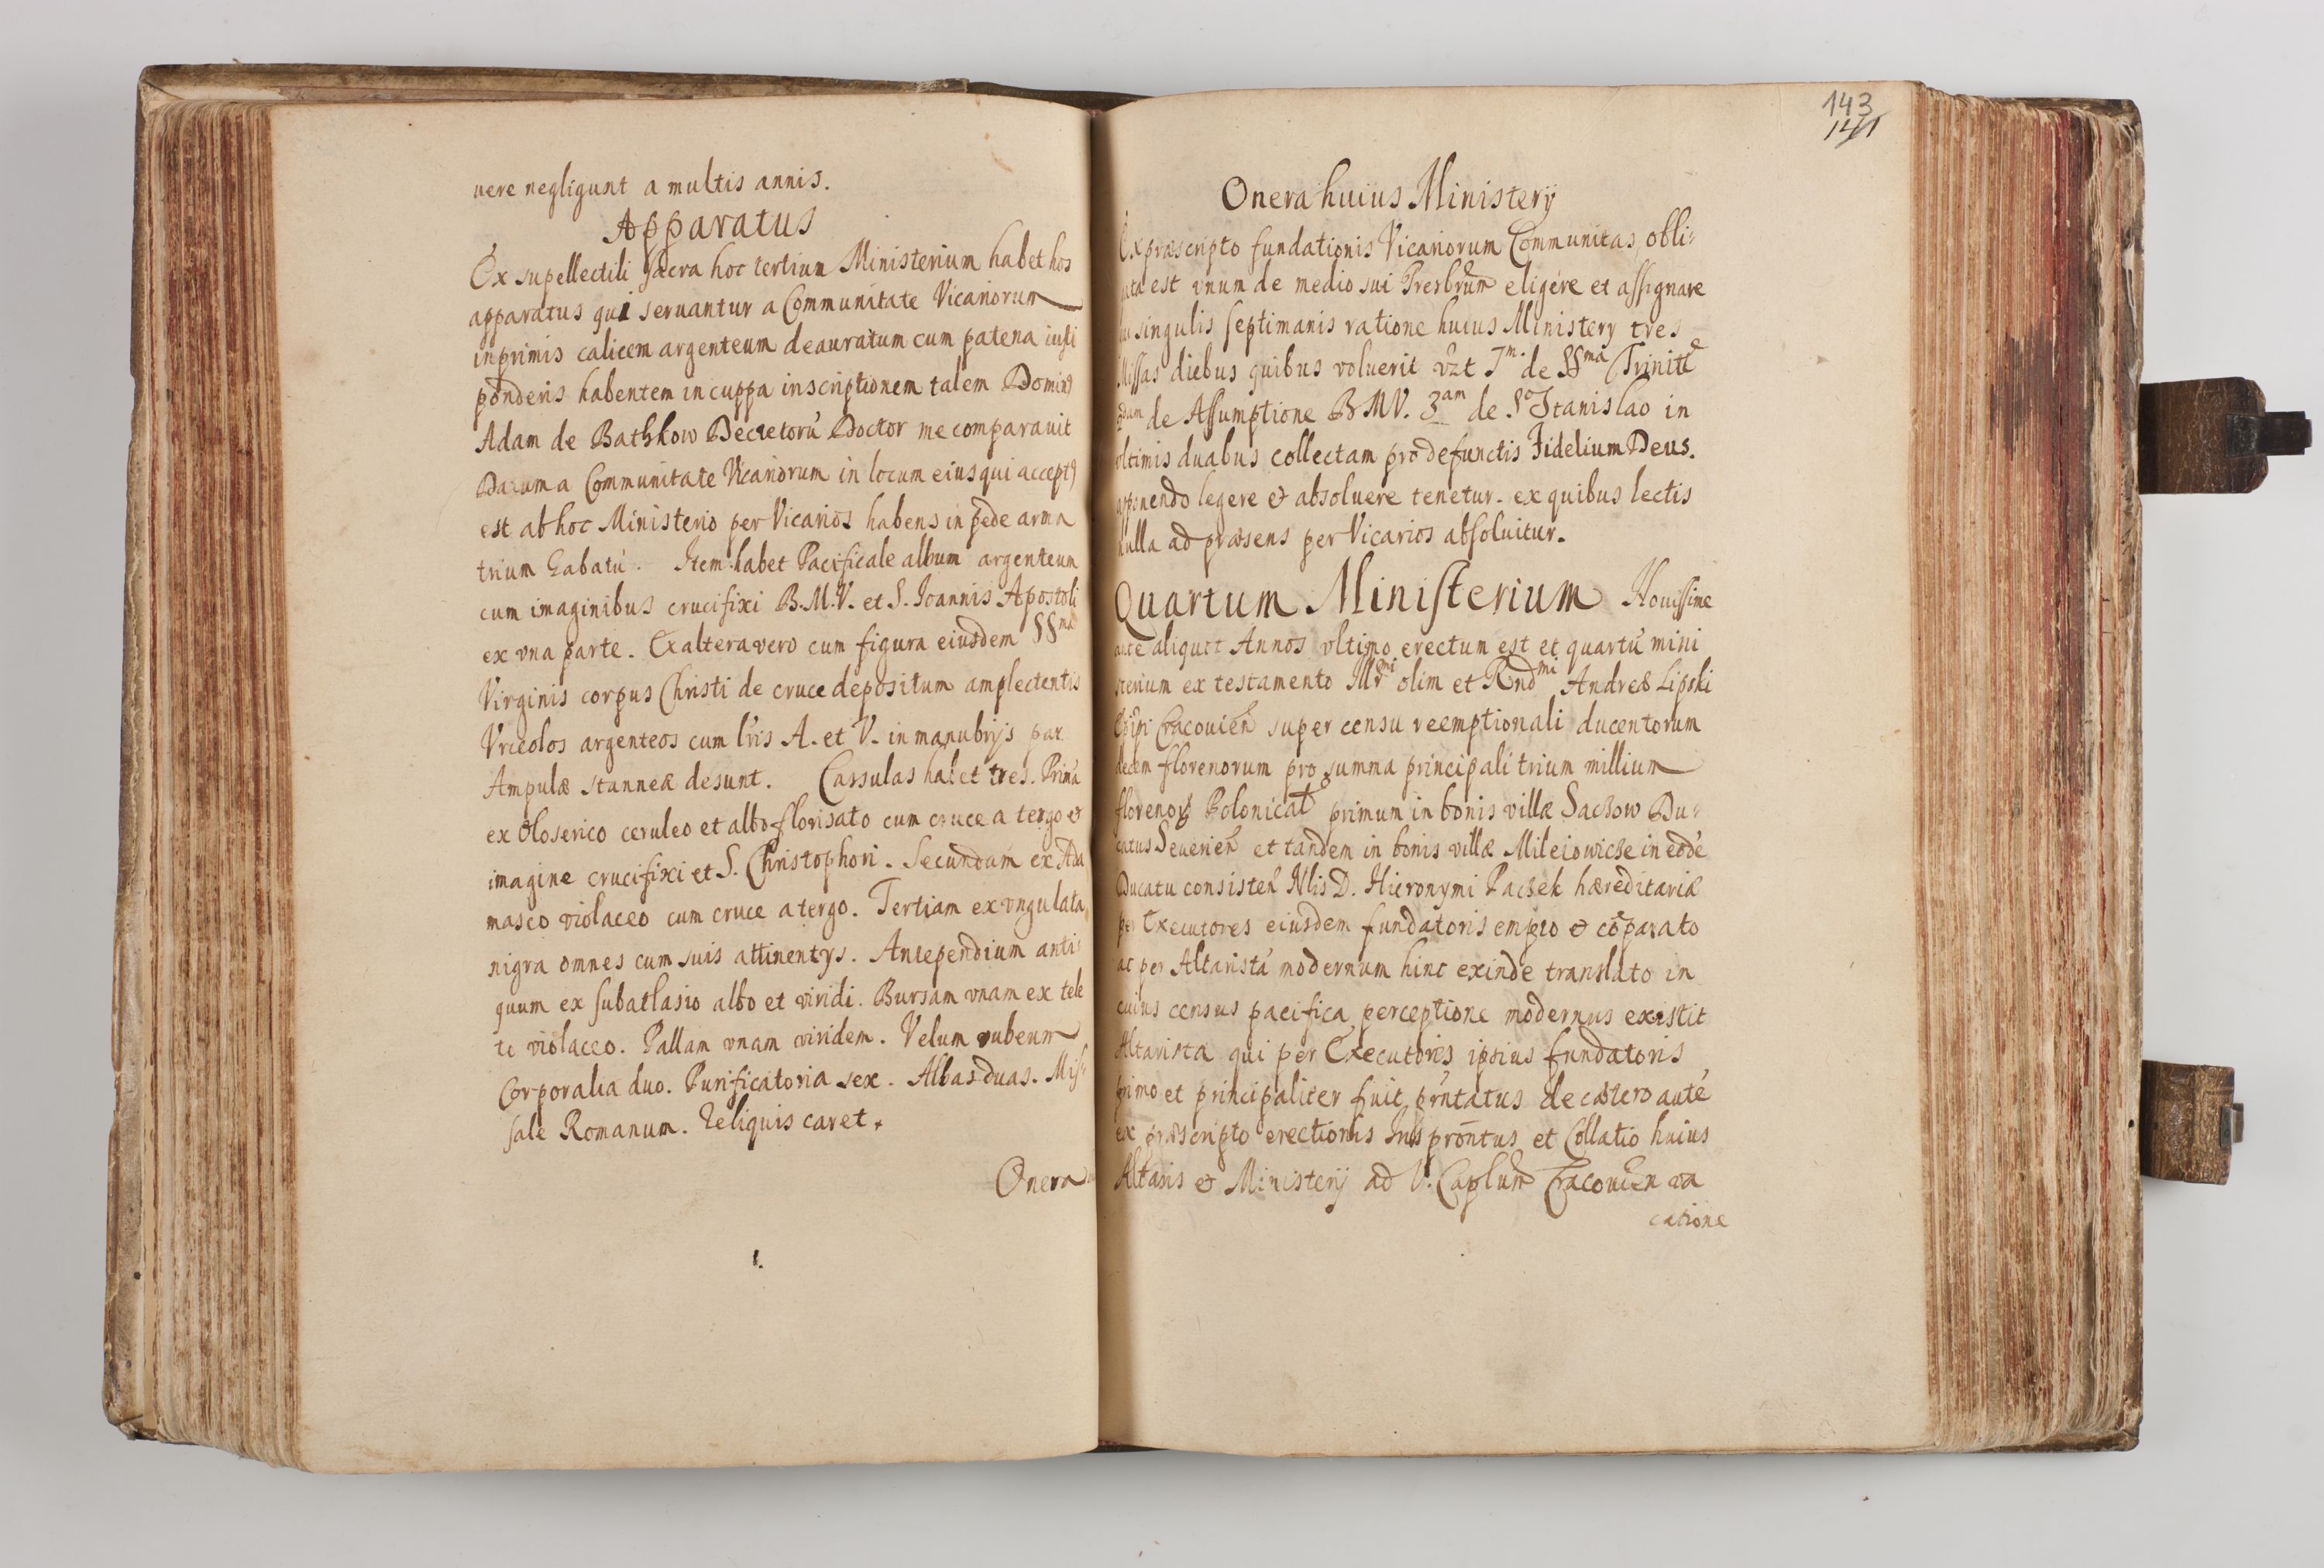 uere negligunt a multis annis.
Apparatus
Ex supellectili sacra hoc tertium Ministerium habet hos
apparatus qui seruantur a Communitate Vicariorum
inprimis calicem argenteum deauratum cum patena iusti
ponderis habentem in cuppa inscriptionem talem Domin9
Adam de Bathkow Decretorú Doctor me comparauit
Datum a Communitate Vicariorum in locum eius qui accept9
est ab hoc Ministerio per Vicarios habens in pede arma
trium Labatú. Item habet Pacificale album argenteum
cum imaginibus crucifixi B.M.V. et S. Joannis Apostoli
ex vna parte. Ex altera vero cum figura eiusdem SSma
Virginis corpus Christi de cruce depositum amplectentis
Vrceolos argenteos cum lris A. et V. in manubrÿs par
Ampulæ stanneæ desunt. Casulas habet tres. Primá
ex oloserico ceruleo et albo florisato cum cruce a tergo &
imagine crucifixi et S. Christophori. Secundam ex Ada
masco violaceo cum cruce a tergo. Tertiam ex vngulata
nigra omnes cum suis attinentys. Antependium anti
quum ex subatlasio albo et viridi. Bursam vnam ex tele
te violaceo. Pallam vnam viridem. Velum rubeum
Corporalia duo. Purificatoria sex. Albas duas. Mis-
sale Romanum. Reliquis caret.
Onera
143
141
Onera huius Ministerÿ
Ex præscripto fundationis Vicariorum Communitas obli-
gata est vnum de medio sui Presbrum eligere et assignare
singulis septimanis ratione huius Ministery tres
Missas diebus quibus voluerit vzt Im. de SSma Trinitte
2dam de Assumptione BMV. 3am de So Stanislao in
vltimis duabus collectam pro defunctis Fidelium Deus.
apponendo legere & absoluere tenetur. ex quibus lectis
nulla ad præsens per Vicarios absoluitur.
Quartum Ministerium Nouissime
ante aliquot Annos vltimo erectum est et quartú mini
sterium ex testamento Illrmi olim et Rndmi Andreæ Lipski
Eppi Cracouien super censu reemptionali ducentorum
decem florenorum pro summa principali trium millium
florenor Polonicat primum in bonis villæ Saczow Du-
catus Seuerien et tandem in bonis villæ Mileiowicze in eodé
Ducatu consisten Nlis D. Hieronymi Paczek hæreditariæ
per Executores eiusdem fundatoris empto & coparato
ac per Altaristá modernum hinc exinde translato in
cuius census pacifica perceptione modernus existit
Altarista qui per Executoris ipsius fundatoris
primo et principaliter fuit pntatus de cætero auté
ex præscripto erectionis Ius prontus et Collatio huius
Altaris & Ministerÿ ad V. Caplum Cracouien va
catione